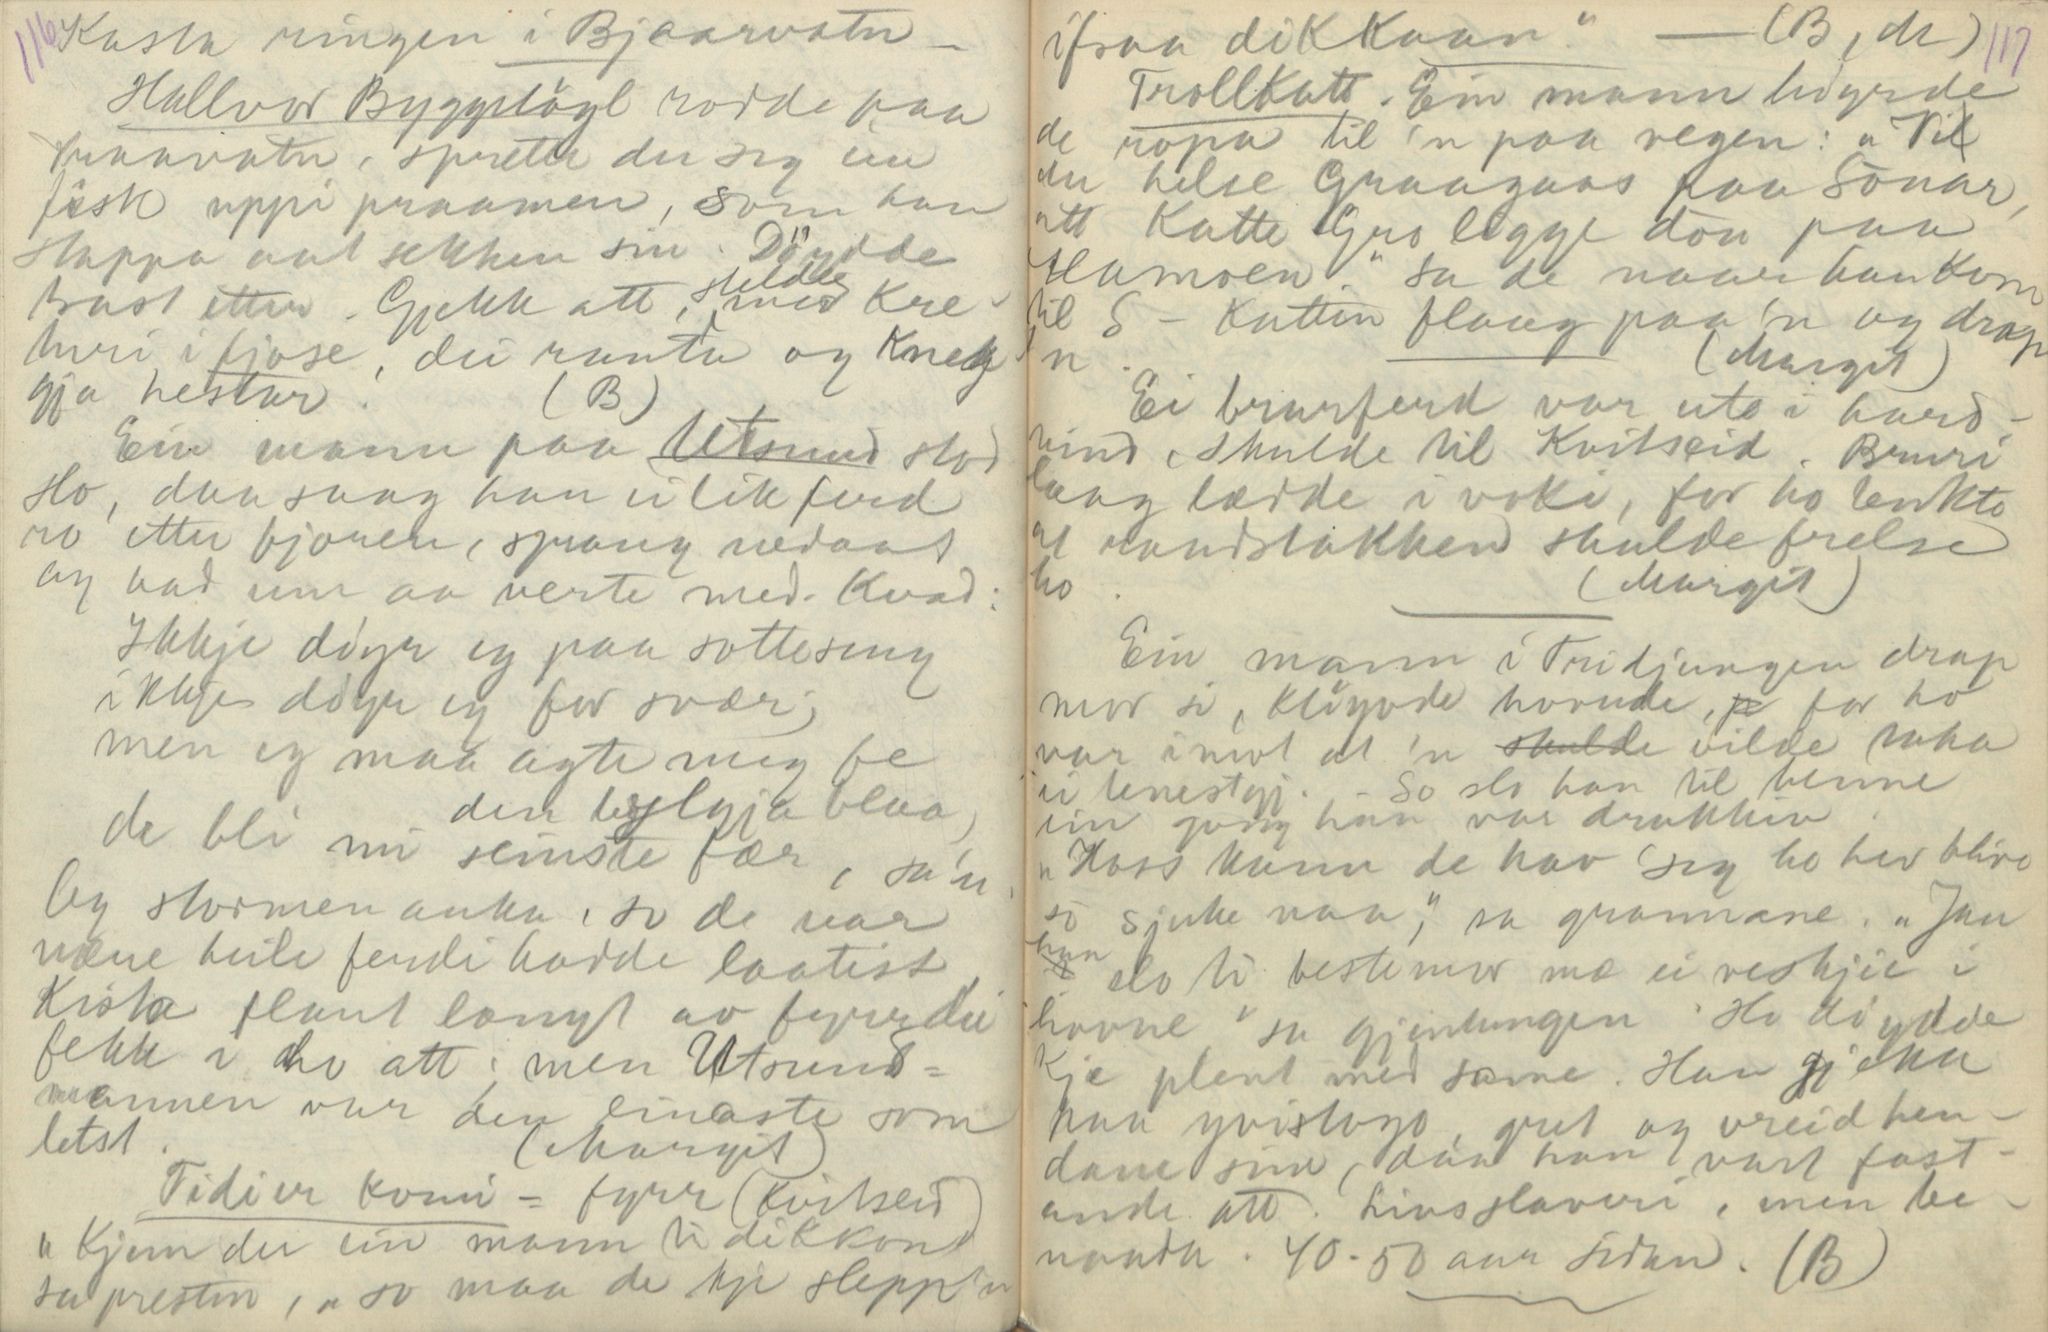 116
Kasta ringen i Bjaarvatn –
Hallvor Byggstöyl rodde paa
vatn, sprette der seg ein
fisk uppi praamen, som han
slappa aat sekken sin. Döydde
brast etter. Gjekk att, stelde med kre-
turi i fjose, dei rauta og kneg
gja hestar. (B)
Ein mann paa Utsund stod
slo, daa saag han ei likferd
ro etter fjoren, sprang nedaat
og bad um aa verte med. Kvad:
Ikkje döyr eg paa sotteseng
ikkje döyr eg for svær;
men eg maa agte meg fe
den bylgja blaa,
de bli mi seinste fær, sa 'n.
Og stormen auka, so de var
nære heile ferdi hadde laatist
Kista flaut langt av fyrr dei
fekk i ho att; men Utsund-
mannen var den einaste som
letst. (Margit)
Tidi er komi – fyrr (Kvitseid)
"Kjem der ein mann ti dikkon
sa presten, "so maa de kje slepp 'n
117
ifraa dikkaan." — (B, dr)
Trollkatt. Ein mann höyrde
de ropa til 'n paa vegen: "Vil
du helse Graagaas paa Sönar,
att Katte Gro ligge döu paa
Hamoen." sa de naar han kom
til S – Katten flaug paa 'n og drap
'n. (Margit)
Ei brurferd var ute i hard-
vind, skulde til Kvitseid. Bruri
laag lædde i voki, for ho tenkte
at raudstakken skulde frelse
ho. (Margit)
Ein mann i Tridjungen drap
mor si, klöyvde hovude, for ho
var imot at 'n skulde vilde taka
ei tenestgj. – So slo han til henne
ein gong han var drukkin.
"Hoss kann de hav seg ho hev blive
so sjuke naa," sa grannane. "Jau
han slo ti bestemor mæ ei veskjie i
hovue" sa gjentungen. Ho döydde
kje plent med same. Han gjekk
paa yvistogo, gret og vreid hen-
dane sine, daa han vart fast-
ande att. Livsslaveri, men be-
naada. 40-50 aar sidan. (B)